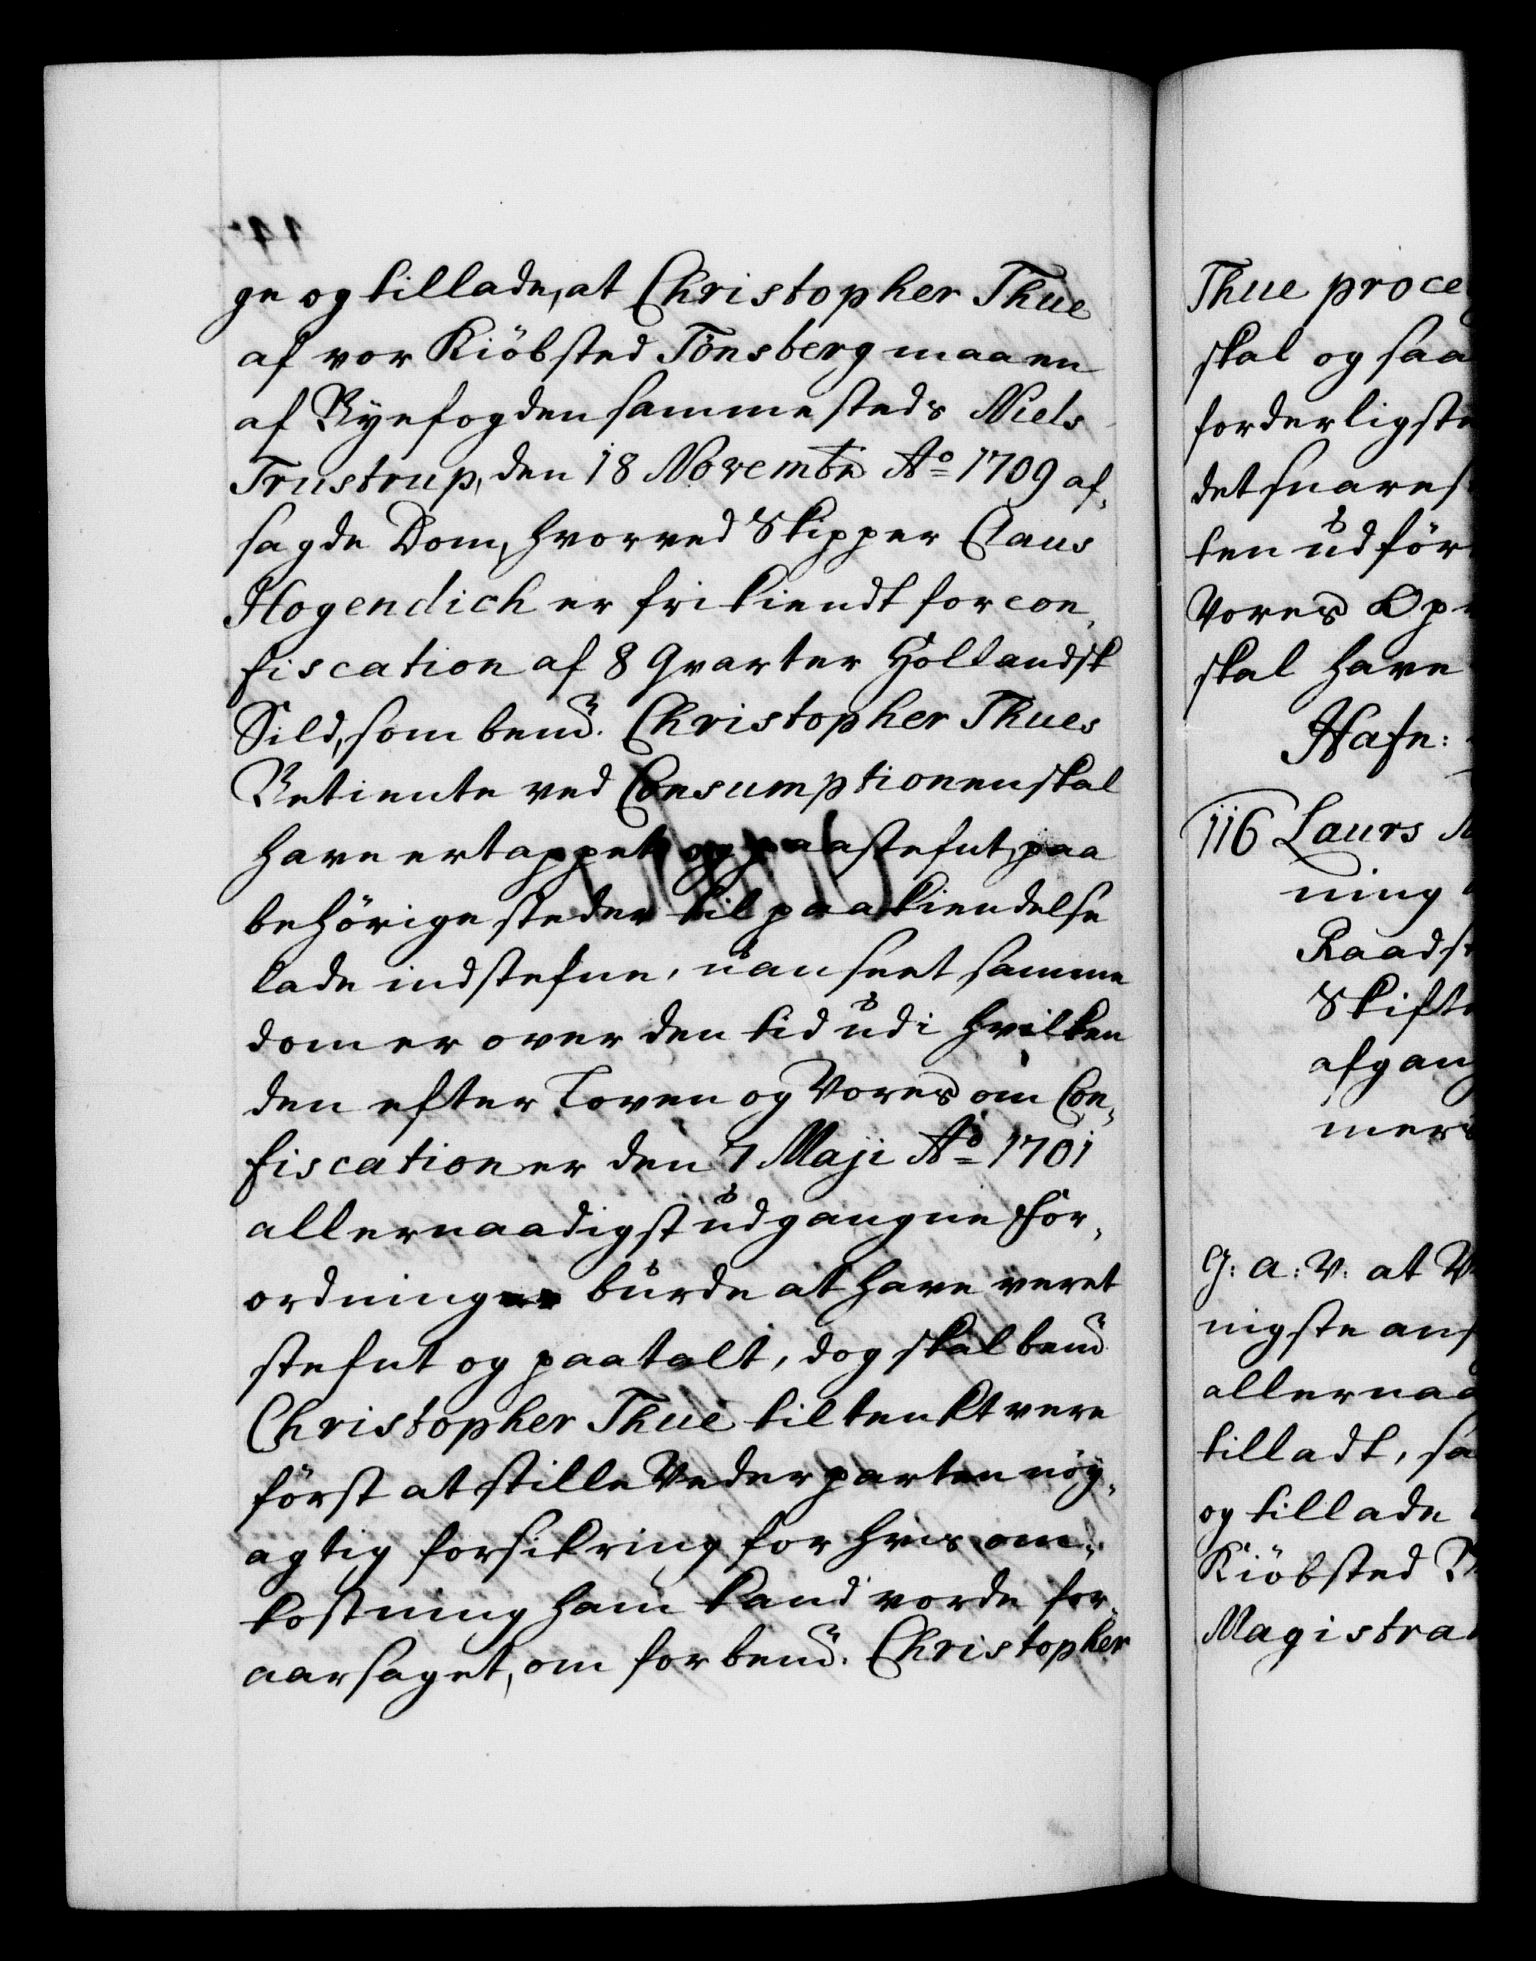 ge og tillade, at Christopher Thue
af vor Kiöbsted Tönsberg maa en
af Byefogden sammesteds Niels
Trustrup, den 18 Novembr Ao 1709 af-
sagde Dom, hvorved Skipper Claus
Hogendich er frikiendt for con-
fiscation af 8 Qvarter Hollandsk
Sild, som bemd. Christopher Thues
Betiente ved Consumptionen skal
have ertappet og paastefnt, paa
behörige steder til paakiendelse
lade indstefne, uanseet samme
dom er over den tid udi hvilken
den efter Loven og Vores om Con-
fiscationer den 7 Maji Ao 1701
allernaadigst udgangne For-
ordning burde at have veret
stefnt og paatalt, dog skal bemd
Christopher Thue tiltenkt vere
först at stille Vederparten nöy-
agtig forsikring for hvis om-
kostning ham kand vorde for-
aarsaget, om forbemd. Christopher
Thue proce
skal og saa
forderligste
det snares
ten udför
Vores Op
skal have
Hafn:
116 Laurs
ning
Raads
Skifte
afgang
mers
G: A: V: at V
nigste ans
allernaa
tilladt, sa
og tillade
Kiöbsted
Magistra